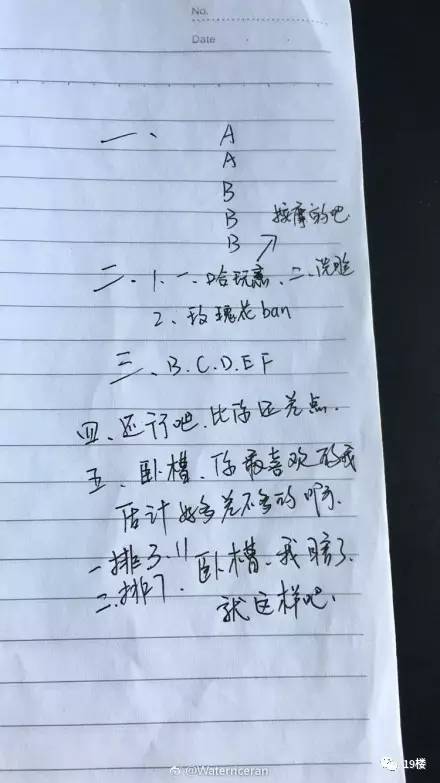 No.
Date
一、 A
A
B
B 按摩的吧
B
二、1、一、哈玩意、二、洗脸
2、玫瑰花ban
三、B.C.D.E.F
四、还行吧.比你还差点.
五、卧槽、你最喜欢的我
估计好多差不多的啊.
一排3.11 卧槽、我瞎了
二.排7. 就这样吧.
@Waternceran
19楼